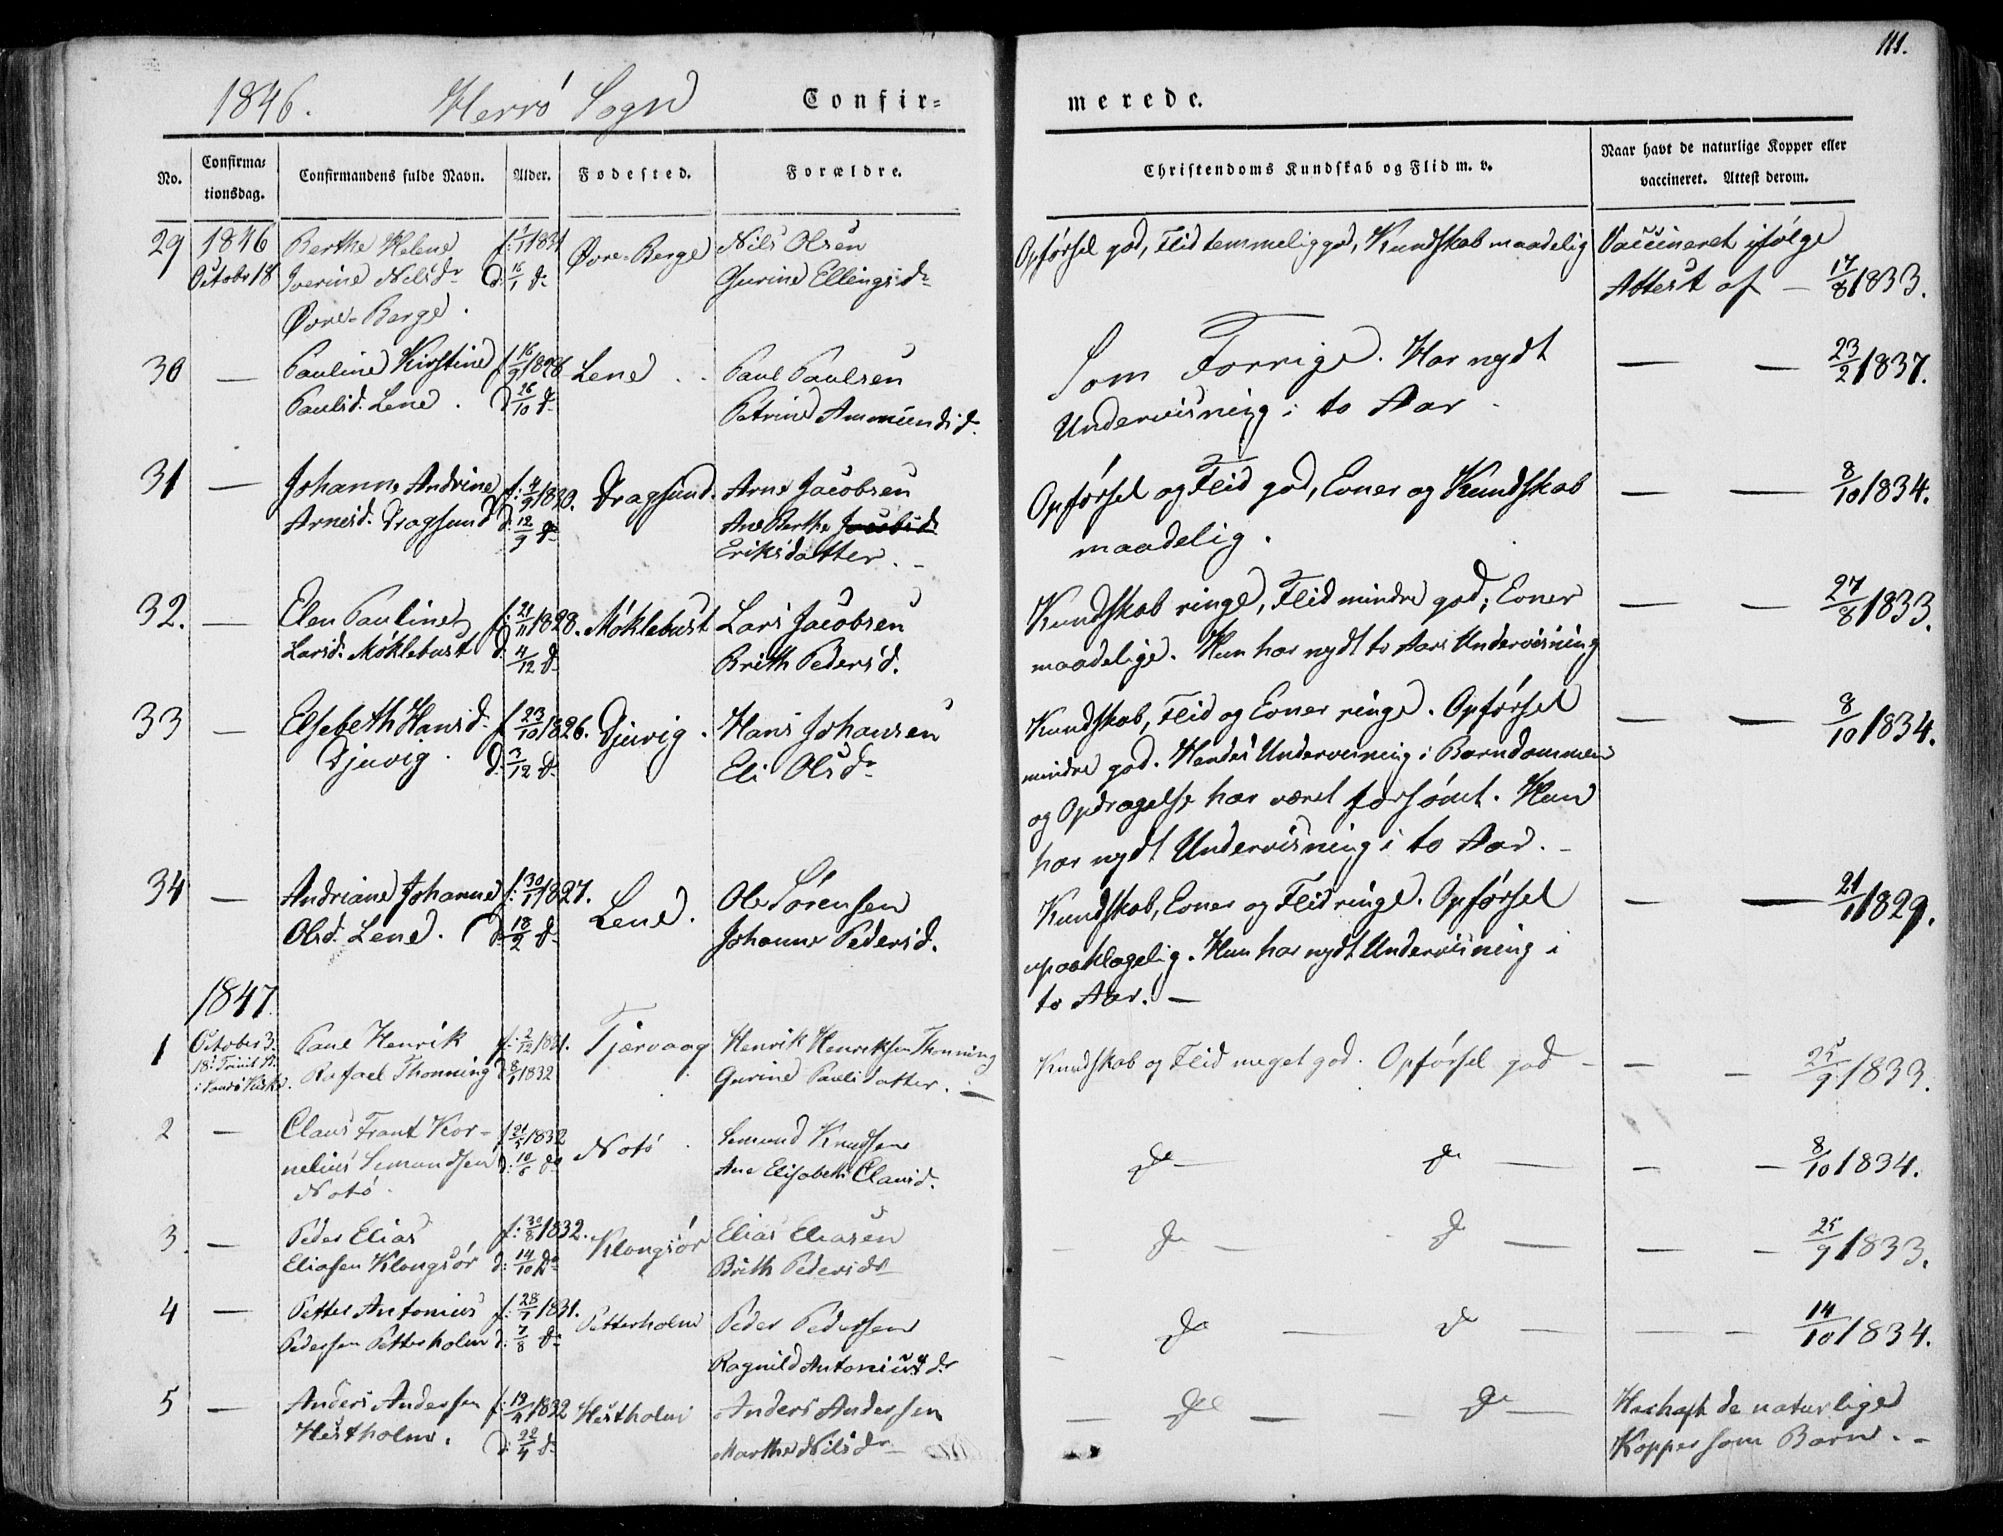 111.
1846. Herrö Sogn Confir=
merede.
No.
Confirma-
tionsdag.
Confirmandens fulde Navn.
Alder.
Fødested.
Forældre.
Christendoms Kundskab og Flid m. v.
Naar havt de naturlige Kopper eller
vaccineret. Attest derom.
29 1846 Berthe Helene f: 1831 Øvre-Berge Nils Olsen Opførsel god, Flid temmelig god, Kundskab maadelig Vaccineret ifølge
Octobr 18 Iverine Nilsdr d. 16/1 do Gurine Ellingsdr Attest af — 17/8 1833.
Øvre-Berge.
30 — Pauline Kirstine f 16/9 1828 Lene Paul Paulsen Som Forrige. Har nydt — — 23/2 1837.
Paulsd. Lene. d 26/10 do Petrine Ammundsd. Underviisning i to Aar
31 — Johanne Andrine f: 4/9 1830. Dragsund. Arne Jacobsen Opførsel og Flid god, Evner og Kundskab — — 8/10 1834.
Arnesd. Dragsund d: 12/9 do Ane Berthe Jacobsd maadelig.
Eriksdatter. –
32. — Elen Pauline f: 21/11 1828. Møklebust Lars Jacobsen Kundskab ringe, Flid mindre god; Evner — — 27/8 1833.
Larsd. Møklebust d. 4/12 do Brith Pedersd. maadelige. Hun har nydt to Aars Underviisning
33 — Elsebeth Hansd. f 23/10 1826. Djuvig. Hans Johansen Kundskab, Flid og Evner ringe. Opførsel — — 8/10 1834.
Djuvig. d. 3/12 do Eli Olsdr mindre god. Hendes Underviisning i Barndommen
og Opdragelse har været forsømt. Hun
har nydt Underviisning i to Aar. –
34 — Andriane Johanne f: 30/1 1827. Lene. Ole Sørensen Kundskab, Evner og Flid ringe. Opførsel — — 21/1 1829.
Olsd. Lene. d 18/2 do Johanne Pedersd. upaaklagelig. Hun har nydt Underviisning i
to Aar. —
1847.
1 October 3. Paul Henrik f: 2/12 1831. Tjervaag Henrik Henriksen Thonning Kundskab og Flid meget god. Opførsel god — — — 25/9 1833.
18. Trinit. Rafael Thonning d 8/1 1832 Gurine Paulsdatter. —
2 — Claus Frant Kor- f 21/5 1832 Notö. Semund Knudsen do — do — — — 8/10 1834.
nelius Semundsen d: 10/6 do Ane Elisabeth Clausd.
Notö.
3. — Peder Elias f: 30/8 1832. Klongsör Elias Eliasen — do — do — — — 25/9 1833.
Eliasen Klongsör d: 14/10 do Brith Pedersdr
4 — Petter Antonius f: 28/7 1831. Petterholm Peder Pedersen do — do — — — 14/10 1834.
Pedersen Petterholm d: 7/8 do Ragnild Antoniusdr
5 — Anders Andersen f: 19/4 1832 Hestholm Anders Andersen — do — do — Har havt de naturlige
Hestholm. d: 22/4 do Marthe Nilsdr Kopper som Barn. –